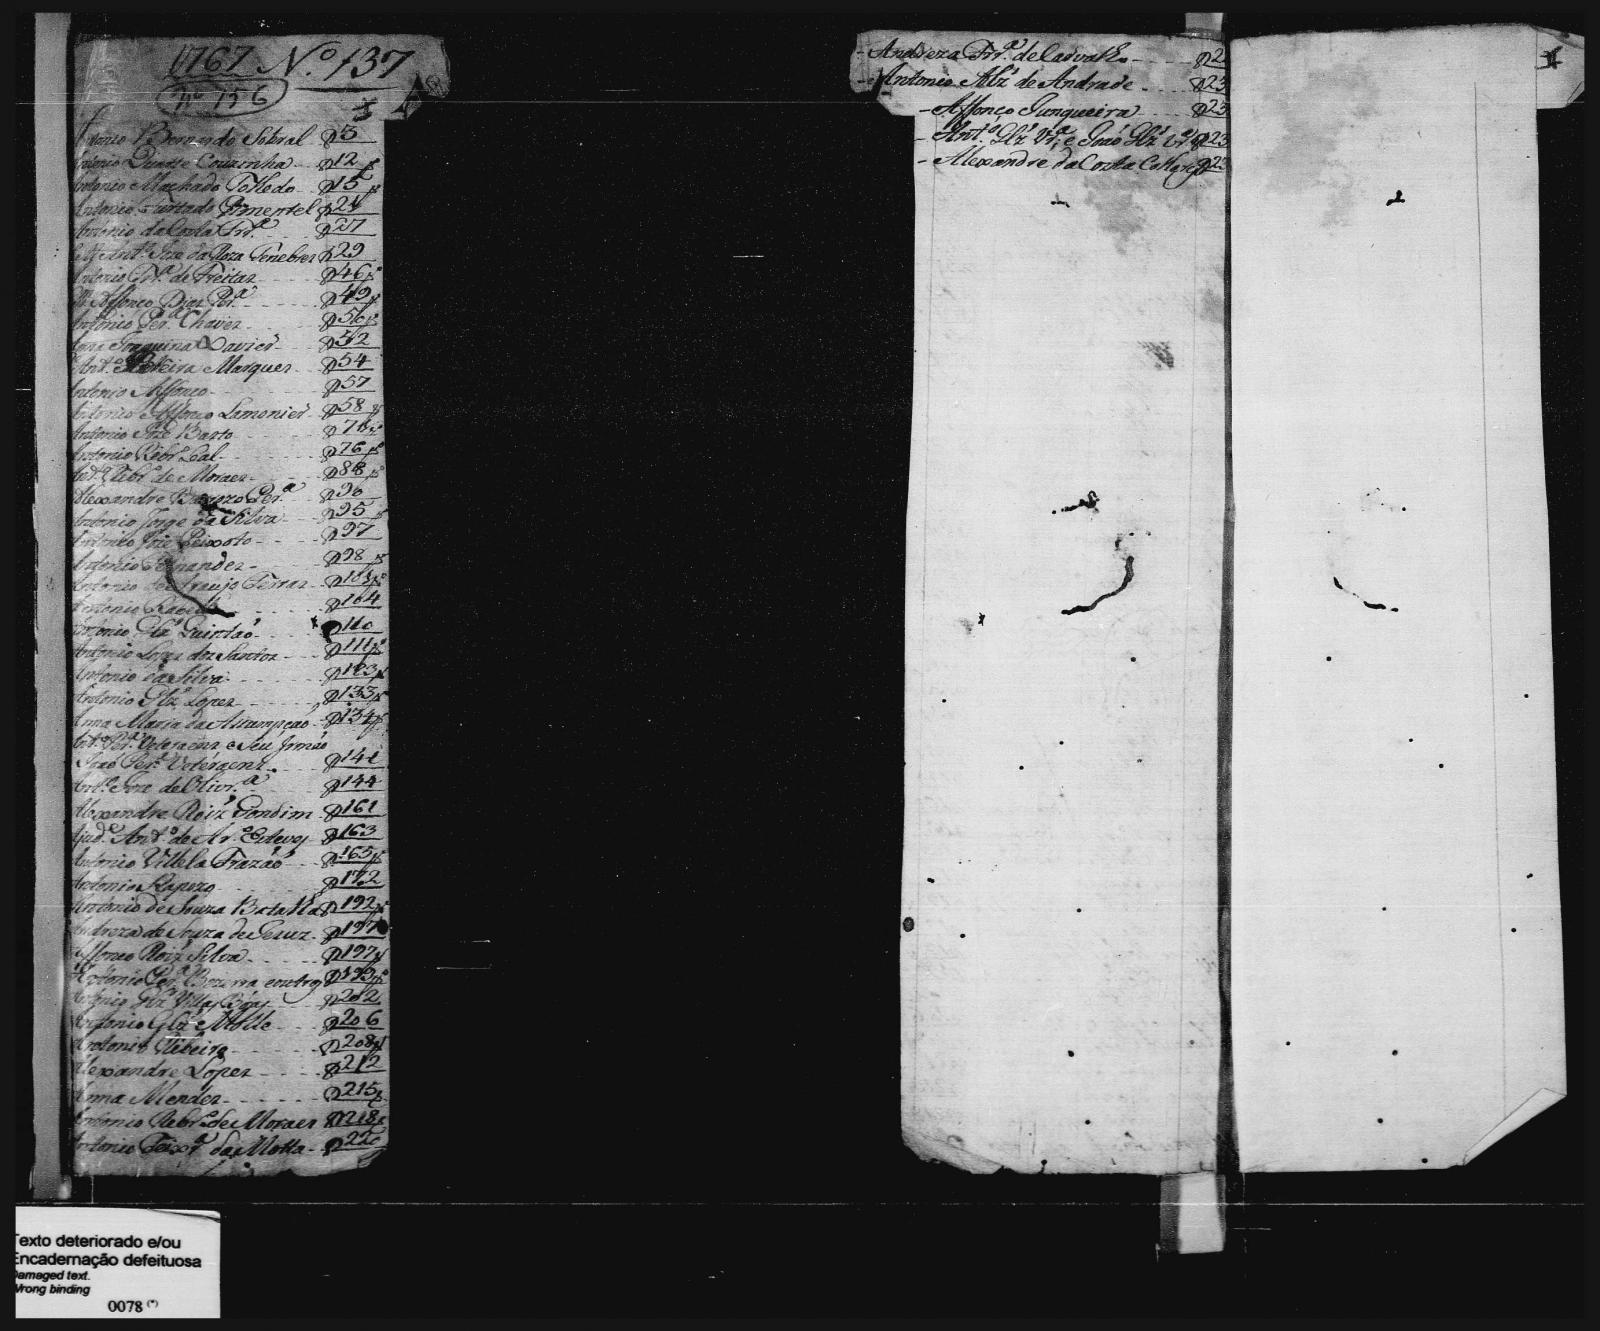 1767 N.º 137
Nº 156
A
Antonio Bernardo Sobral 3
Antonio Duarte Couzinha 12
Antonio Machado Tolledo 15
Antonio Furtado Pimentel 21
Antonio da Costa Frr.ª 27
Ant.º Joze da Roza Tenebres 29
Antonio Frr.ª de Freitas 46
Affonço Dias Per.ª 49
Antonio Per.ª Chaves 50
Anna Joaquina Xavier 52
Ant.º Marques 54
Antonio Affonço 57
Antonio Affonço Lamonier 58
Antonio Joze Basto
Antonio Ribr.º Leal 76
Ant.º Ribr.º de Moraes 88
Alexandre Per.ª 90
Antonio Jorge da Silva 95
Antonio Joze Peixoto 97
Antonio Fernandes 98
Antonio de Araujo Ferras
Antonio 104
Antonio Glz' Quintaõ 110
Antonio Lopes dos Santos 111
Antonio da Silva 123
Antonio Glz' Lopes 133
Anna Maria da Assumpçaõ 134
Ant.º Per.ª e Seu Irmaõ
Joaõ Per.ª 141
Ant.º Joze de Olivr.ª 144
Alexandre Roiz' Gondim 161
Ajud.e Ant.º de Ar.º Esteves 163
Antonio Villela Frazaõ 165
Antonio Rapozo 172
Antonio de Souza Batalha 192
Andreza de Souza de Jesuz 197
Affonço Roiz' Silva 197
Antonio Per.ª Bezerra e outros 199
Antonio Glz' Villas Bóas 202
Antonio Glz' 206
Antonio Ribeiro 208
Alexandre Lopes 212
Anna Mendes 215
Antonio Ribr.º de Moraes 218
Antonio Teixr.ª da Motta 220
- Andreza Frr.ª de Carvalho 2
- Antonio Alz' de Andrade 23
- Affonço Junqueira 23
- Ant.º Glz' Vr.ª, e Joaõ Glz' Vr.ª 23
- Alexandre da Costa 23
Texto deteriorado e/ou
Encadernação defeituosa
Damaged text.
Wrong binding
0078 (*)